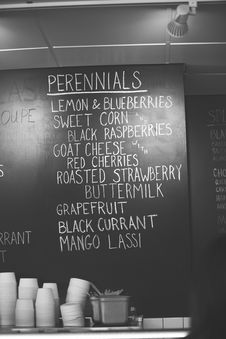 PERENNIALS
LEMON & BLUEBERRIES
SWEET CORN AND
BLACK RASPBERRIES
GOAT CHEESE WITH
RED CHERRIES
ROASTED STRAWBERRY
BUTTERMILK
GRAPEFRUIT
BLACK CURRANT
MANGO LASSI
OUPE
RRANT